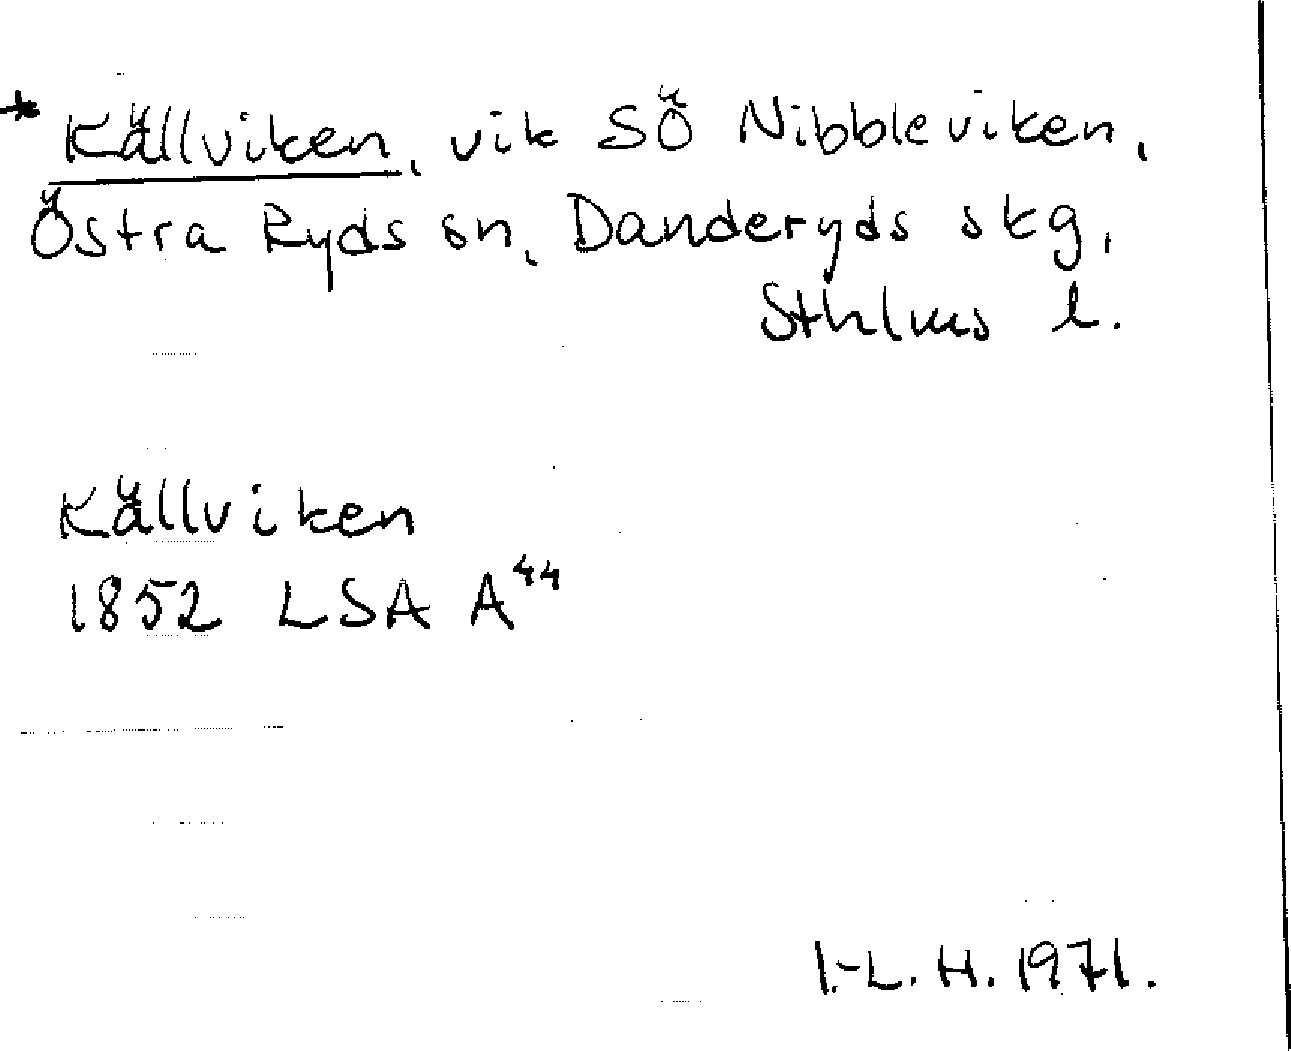 * Källviken, vik SÖ Nibbleviken,
Östra Ryds sn, Danderyds skg,
Sthlms l.
Källviken
1852 LSA A44
I.-L. H. 1971.